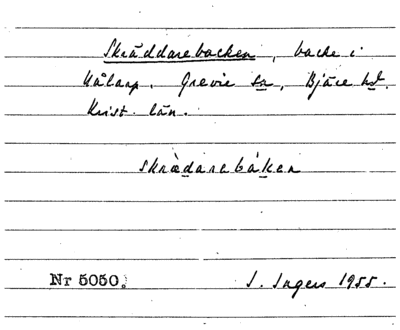 Skräddarebacken, backe i
Kålarp, Grevie sn, Bjäre hd.
Krist. län.
skrædarebaken
Nr 5050.
S. Ingers 1955.